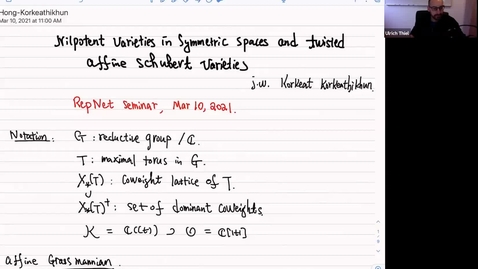 Hong-Korkeathikhun
Mar 10, 2021 at 11:00 AM
Ulrich Thiel
Nilpotent varieties in symmetric spaces and twisted
affine Schubert varieties
j.w. Korkeat Korkeathikhun
RepNet Seminar, Mar 10, 2021.
Notation: G: reductive group /ℂ.
T: maximal torus in G.
X_*(T): coweight lattice of T.
∪
X_*(T)^+: set of dominant coweights.
K = ℂ((t)) ⊃ O = ℂ[[t]]
affine Grassmannian.